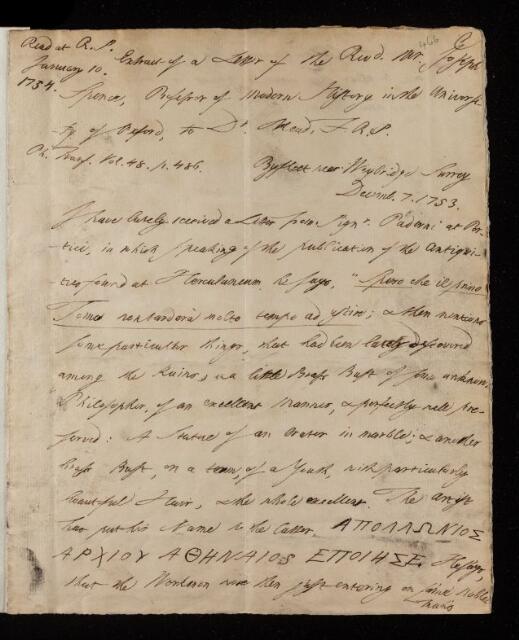 Read at R.S.
January 10.
1754.
466
Extract of a Letter of the Revd. Mr. Joseph
Spence, Professor of Modern History in the Universi-
-ty of Oxford, to Dr. Mead, F.R.S.
Ph. Trans. Vol. 48. p. 486.
Byfleet near Weybridge Surrey
Decemb. 7. 1753.
I have lately received a Letter from Signr. Paderni at Por-
tici, in which speaking of the publication of the Antiqui-
ties found at Herculaneum, he says, "Spero che il primo
Tomo non tarderà molto tempo ad uscire; & then mentions
some particular things, that had been lately discovered
among the Ruins, viz a little Brass Bust of some unknown
Philosopher, of an excellent Manner, & perfectly well pre-
served: A Statue of an Orator in marble; & another
brass Bust, on a term, of a Youth, with particularly
beautiful Hair, & the whole excellent. The artist
has put his Name to the latter. ΑΠΟΛΛΩΝΙΟΣ
ΑΡΧΙΟΥ ΑΘΗΝΑΙΟΣ ΕΠΟΙΗΣΕ. He says,
that the Workmen were then just entering on some noble